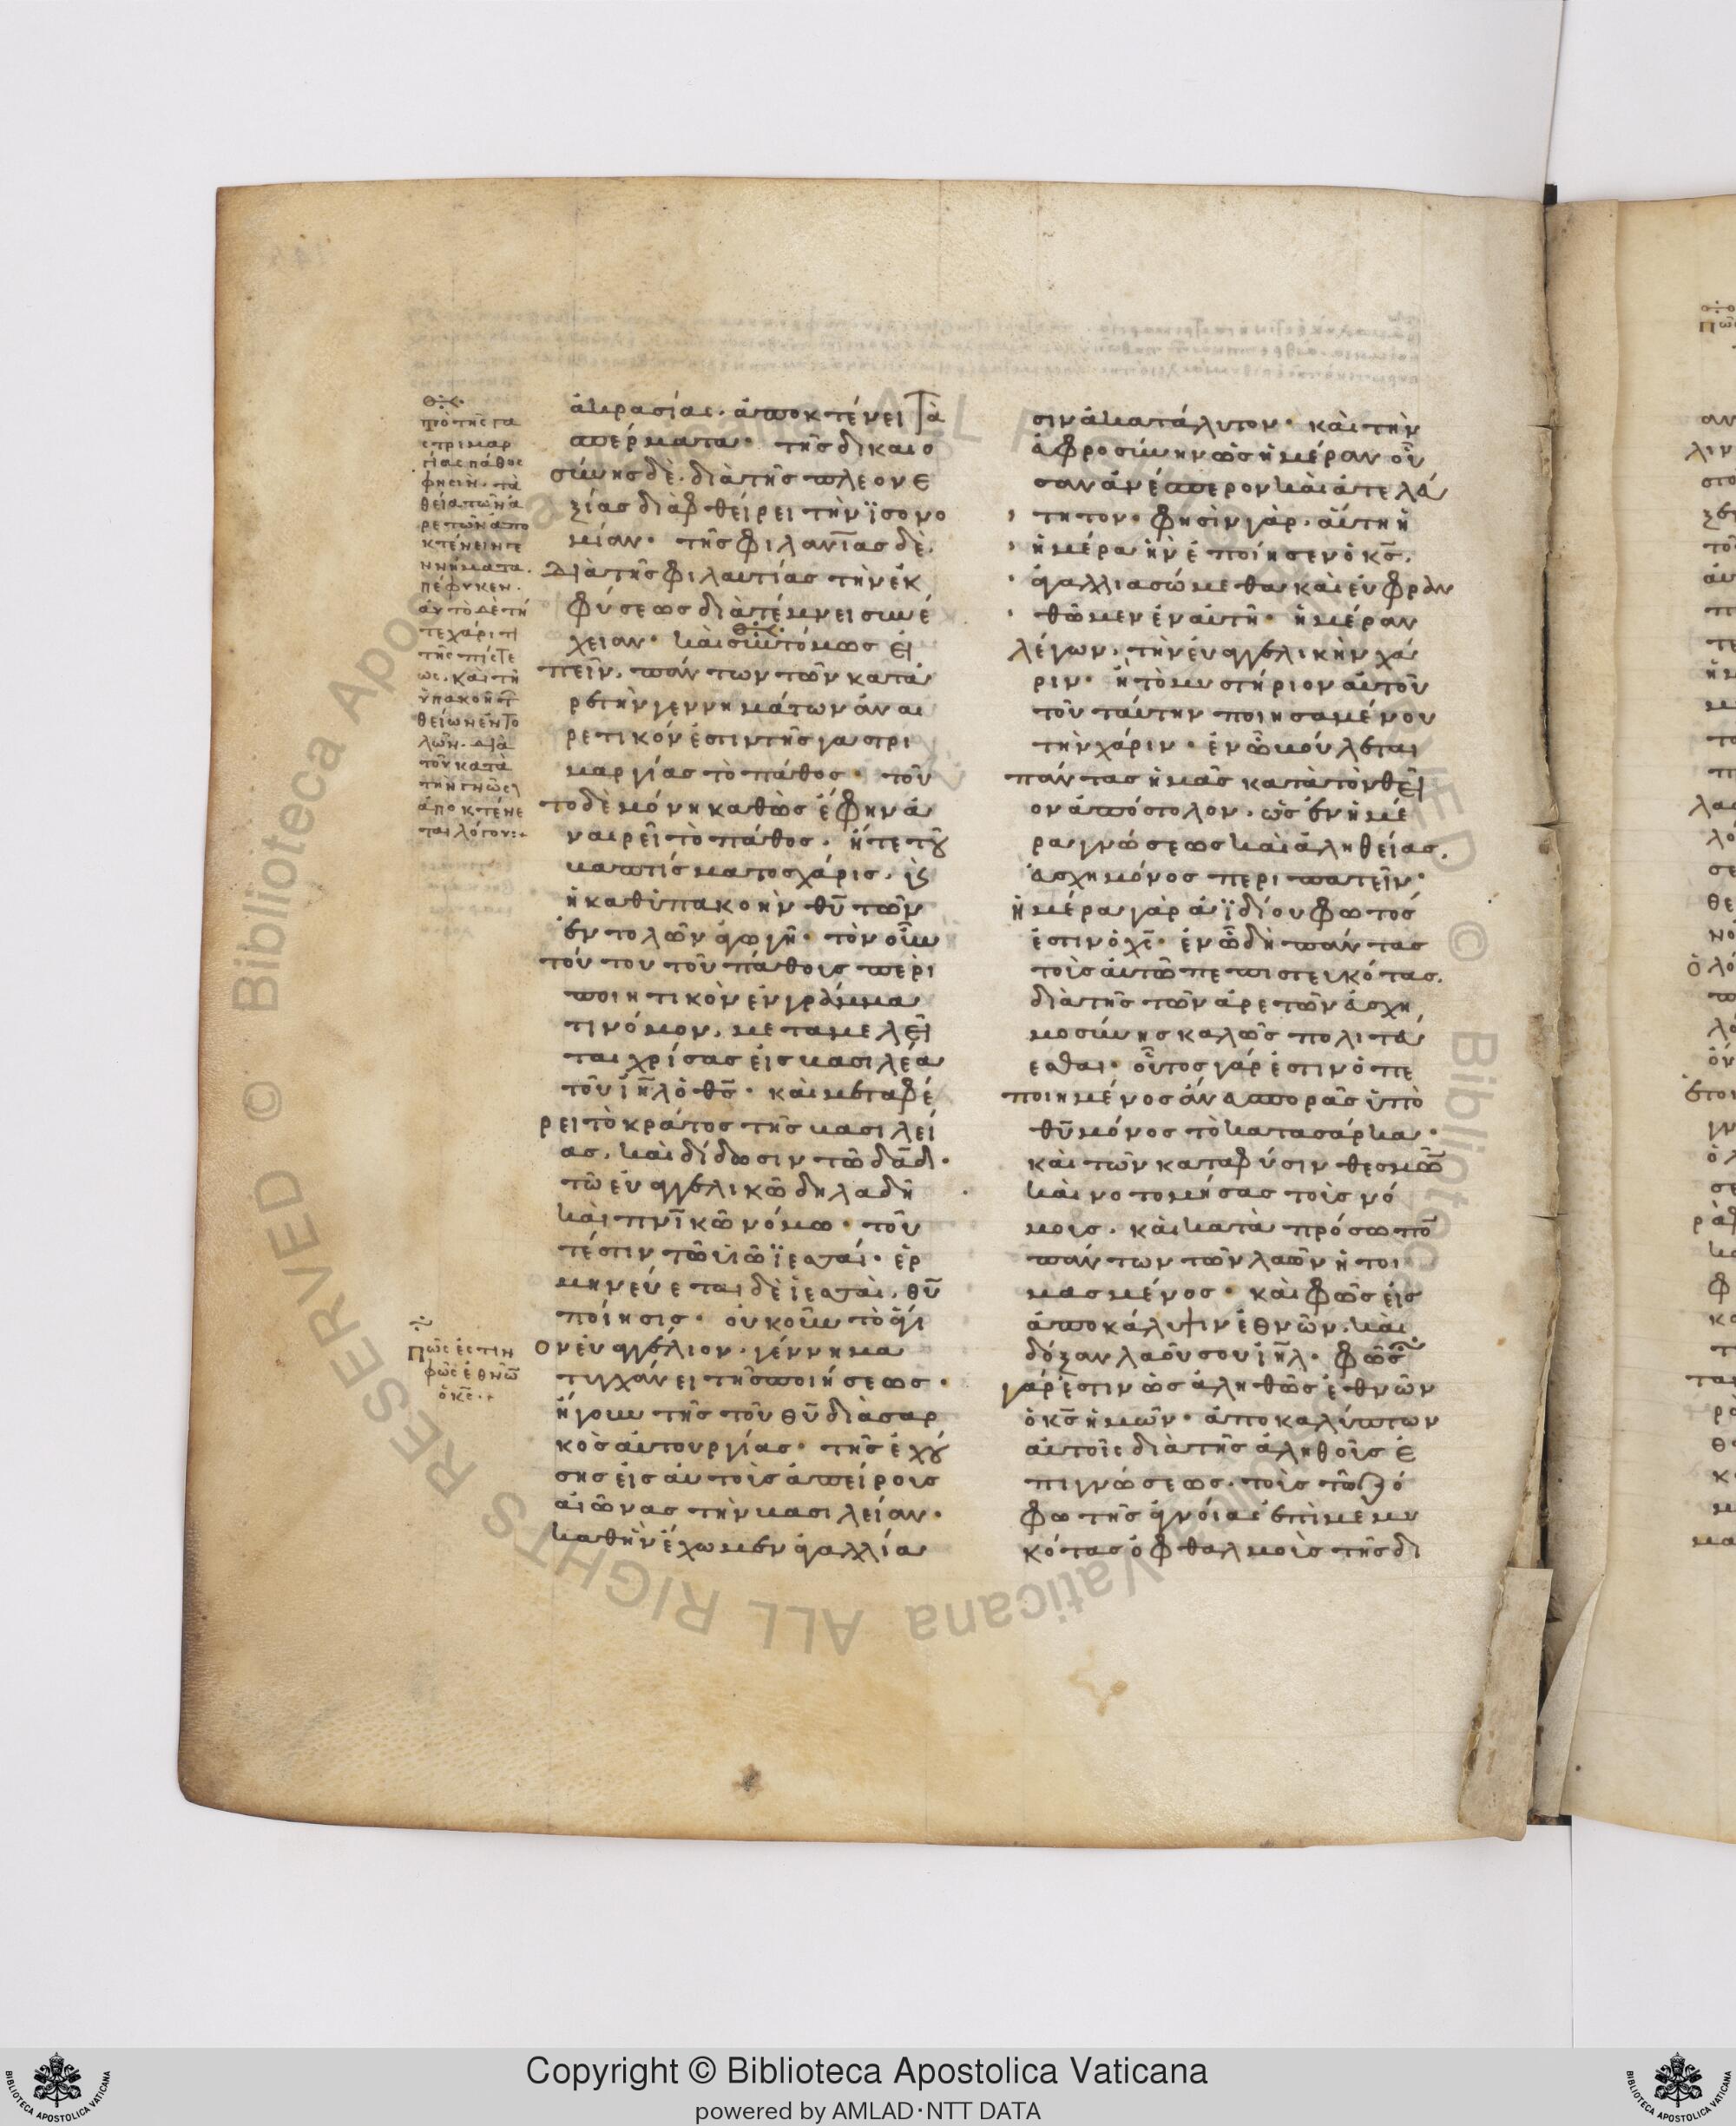 ἀκρασίας· ἀποκτένει τὰ
σπέρματα· τῆς δικαιο
σύνης δὲ· διὰ τῆς πλεονε
ξίας διαφθείρει τὴν ἰσονο
μίαν· τῆς φιλανίας δὲ·
διὰ τῆς φιλαυτίας τὴν ἐκ
φύσεως διατέμνει συνέ
χειαν· καὶ συντόμως εἰ
πεῖν, πάντων τῶν κατά
ρετὴν γεννημάτων ἀναι
ρετικόν ἐστιν τῆς γαστρι
μαργίας τὸ πάθος· τοῦ
το δὲ μόνη καθὼς ἔφην ἀ
ναιρεῖ τὸ πάθος· ἥτε τοῦ
βαπτίσματος χάρις· κ(αὶ)
ἡ καθυπακοὴν θῦ τῶν
ἐντολῶν ἀγωγῆ· τὸν οὖν
τούτου τοῦ πάθους περι
ποιητικὸν ἐν γράμμα
τι νόμον, μεταμελεῖ
ται χρίσας εἰς βασιλέα
τοῦ ιηλ ὁ θς· καὶ μεταφέ
ρει τὸ κράτος τῆς βασιλεί
ας, καὶ δίδωσιν τῷ δαδ·
τῷ εὐαγγελικῷ δηλαδὴ
καὶ πνικῷ νόμω· τοῦ
τέστιν τῷ υἱῷ ἰεσσαί· ἑρ
μηνεύεται δὲ ἰεσσαὶ, θῦ
ποίησις· οὐκοῦν τὸ ἅγι
ον εὐαγγέλιον· γέννημα
τυγχάνει τῆς ποιήσεως·
ἤγουν τῆς τοῦ θῦ διὰ σαρ
κὸς αὐτουργίας· τῆς ἐχού
σης εἰς αὐτοὺς ἀπείρους
αἰῶνας τὴν βασιλείαν·
καθ' ἣν ἔχωμεν ἀγαλλία
σιν ἀκατάλυτον· καὶ τὴν
ἀφροσύνην ὡς ἡμέραν οὖ
σαν ἀνέσπερον καὶ ἀτελεύ
τητον· φησὶν γὰρ· αὕτη ἡ
ἡμέρα ἣν ἐποίησεν ὁ κς·
ἀγαλλιασώμεθα καὶ εὐφραν
θῶμεν ἐν αὐτῇ· ἡμέραν
λέγων, τὴν εὐαγγελικὴν χά
ριν· ἢ τὸ μυστήριον αὐτοῦ
τοῦ ταύτην ποιησαμένου
τὴν χάριν· ἐν ᾧ βούλεται
πάντας ἡμᾶς κατὰ τὸν θεῖ
ον ἀπόστολον, ὡς ἐν ἡμέ
ρα γνώσεως καὶ ἀληθείας,
εὐσχημόνος περιπατεῖν·
ἡμέρα γὰρ ἀϊδίου φωτός
ἐστιν ὁ χς· ἐν ᾧ δὴ πάντας
τοὺς αὐτῷ πεπιστευκότας,
διὰ τῆς τῶν ἀρετῶν εὐσχη
μοσύνης καλῶς πολιτεύ
εσθαι· οὗτος γάρ ἐστιν ὁ πε
ποιημένος ἄνευ σπορᾶς ὑπὸ
θῦ μόνος τὸ κατα σάρκα·
καὶ τῶν κατα φύσιν θεσμῶ
καινοτομήσας τοὺς νό
μους· καὶ κατὰ πρόσωπο
πάντων τῶν λαῶν ἡτοι
μασμένος· καὶ φῶς εἰς
ἀποκάλυψιν ἐθνῶν, καὶ
δόξαν λαοῦ σου ιηλ· φῶς
γάρ ἐστιν ὡς ἀληθῶς ἐθνῶν
ὁ κς ἡμῶν· ἀποκαλύπτων
αὐτοῖς διὰ τῆς ἀληθοῦς ἐ
πιγνώσεως· τοὺς τῷ ζό
φω τῆς ἀγνοίας ἐπιμεμυ
κότας ὀφθαλμοὺς τῆς δι
πὸ τῆς γα
στριμαρ
γίας πάθος
φησιν· τὰ
θεῖα τῶν ἀ
ρετῶν ἀπο
κτένειν γε
ννήματα·
πέφυκεν·
αὐτὸ δὲ τῆ
τε χάριτι
τῆς πίστε
ως· καὶ τῆ
ὑπακοῆ τ
θείων ἐντο
λῶν· διὰ
τοῦ κατὰ
τὴν γνῶσι
ἀποκτένε
ται λόγου:+
πῶς ἐστιν
φῶς ἐθνῶ
ὁ κς·+
Copyright © Biblioteca Apostolica Vaticana
powered by AMLAD·NTT DATA